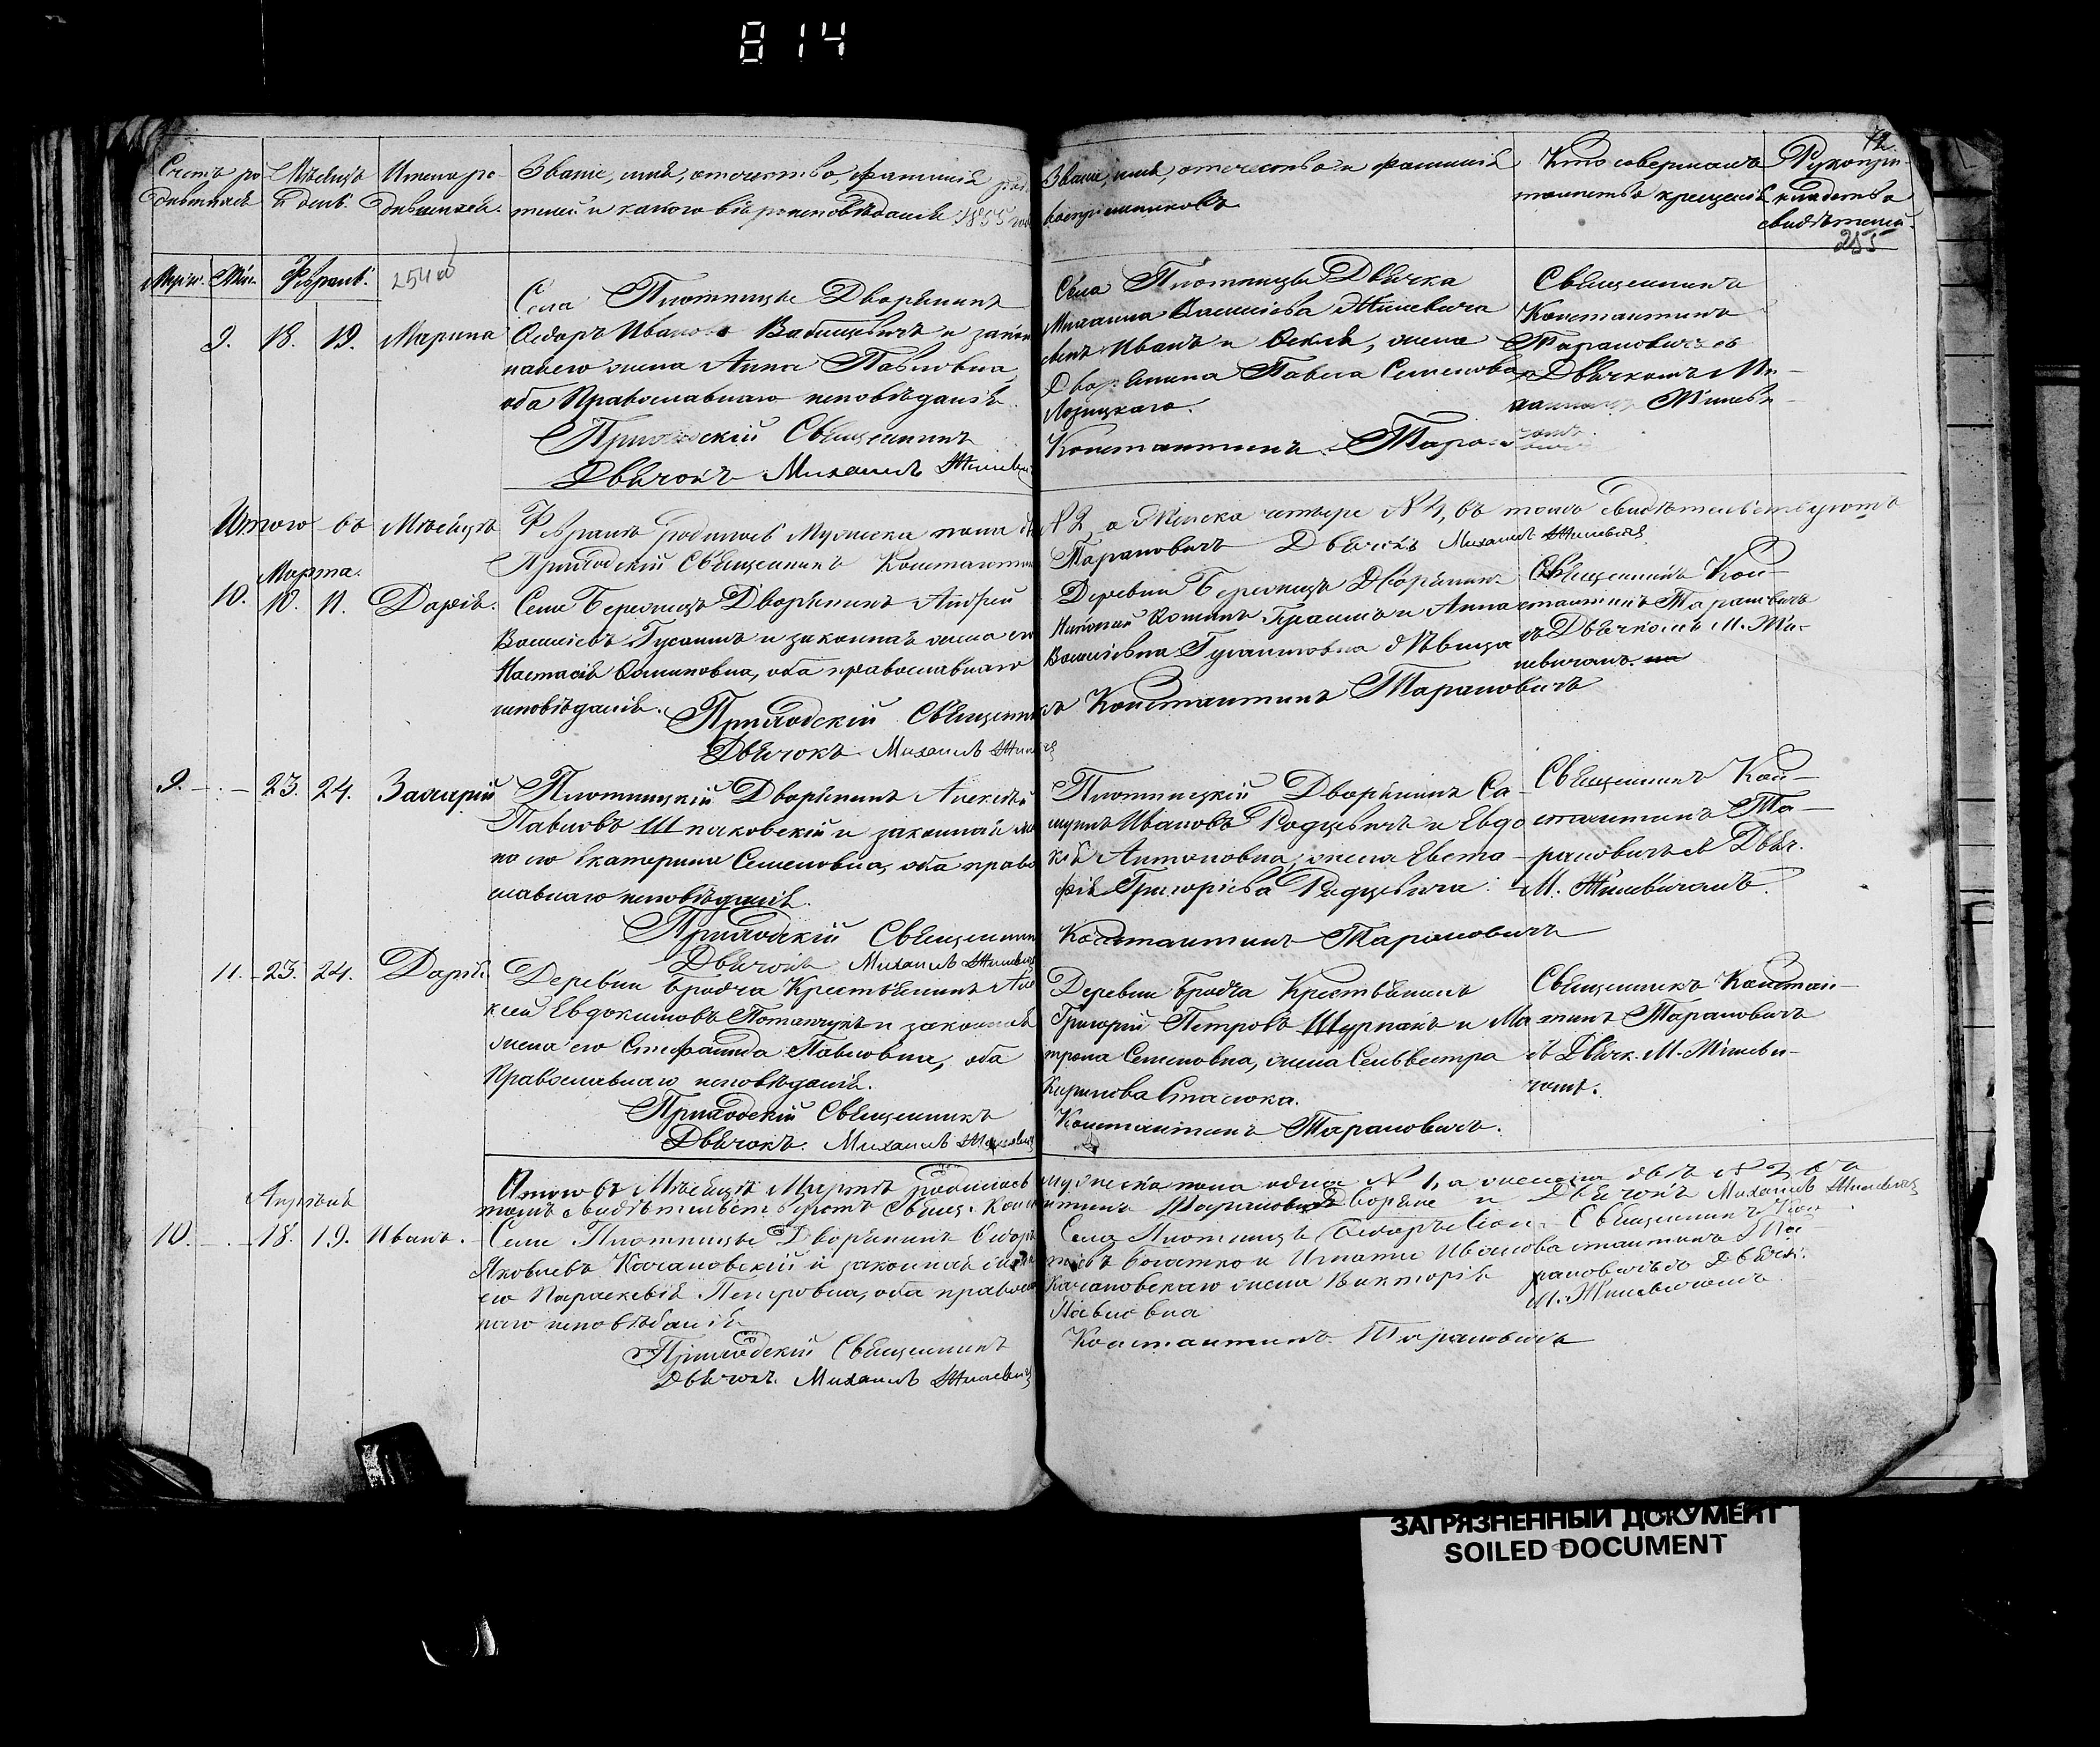 814
12.
Счетъ ро Мѣсяцъ Имена ро- Званіе, имя, отчество, фамилія
дившихся и день. дившихся. телей и какого вѣроисповѣданія 1855
Званіе, имя, отчество и фамилія
воспріемниковъ
Кто совершалъ
таинство крещенія
Рукопри-
кладство
свидѣтелей.
255
Муж. Жен. Февраль. 254 об
9. 18. 19. Марина
Села Плотницы Дворянинъ
Сидоръ Ивановъ Вабищевичъ и закон
ная его жена Анна Павловна,
оба Православнаго исповѣданія.
Приходскій Священникъ
Дьячокъ Михаилъ Жилевич
Села Плотницы Дьячка
Михаила Васильева Жилевича
сынъ Иванъ и Фекла, жена
Дворянина Павла Семенова
Лозицкаго.
Константинъ Тара
Священникъ
Константинъ
Тарановичъ съ
Дьячкомъ Ми-
Жилеви-
чемъ.
Итого въ Мѣсяцѣ Февралѣ родилось Мужеска пола
№ 2, а Женска четыре № 4, въ томъ свидѣтельствуютъ
Приходскій Священникъ Константин
Тарановичъ Дьячокъ Михаилъ Жилевичъ
Марта.
10. 10. 11. Дарія.
Села Бережцы Дворянинъ Андрей
Васильевъ Гусаимъ и законная жена его
Настасія Осиповна, оба православнаго
исповѣданія.
Приходскій Священник
Дьячокъ Михаилъ Жилевич
Деревни Бережцы Дворянинъ
Николай и Анна
Васильевна дѣвица
ъ Константинъ Тарановичъ
Священникъ Кон-
стантинъ Тарановичъ
съ Дьячкомъ М. Жи-
левичемъ.
9. 23. 24. Захарій
Плотницкій Дворянинъ Алексѣй
Павловъ Шпаковскій и законная же
на его Екатерина Семеновна, оба право
славнаго исповѣданія.
Приходскій Священник
Дьячокъ Михаилъ Жилевич
Плотницкій Дворянинъ Са-
муилъ Ивановъ Родцевичъ и Евдо
кія Антоновна, жена Евста-
фія Григорьева Родцевича.
Константинъ Тарановичъ
Священникъ Кон-
стантинъ Та-
рановичъ съ Дьяч.
М. Жилевичемъ.
11. 23. 24. Дарія.
Деревни Бродча Крестьянинъ Але
ксей Евдокимовъ Потапчукъ и законная
жена его Стефанида Павловна, оба
Православнаго исповѣданія.
Приходскій Священникъ
Дьячокъ. Михаилъ Жилевич
Деревни Бродча Крестьянинъ
Григорій Петровъ Шурпакъ и Ма
трона Семеновна, жена Сельвестра
Кирилова Стасюка.
Константинъ Тарановичъ.
Священникъ Констан-
тинъ Тарановичъ
съ Дьячк. М. Жилеви-
чемъ.
Итого въ Мѣсяцѣ Мартѣ родилось
мужеска пола одинъ № 1, а женска двѣ № 2 въ
томъ свидѣтельствуютъ Свящ. Конста
нтинъ Тарановичъ и Дьячокъ Михаилъ Жилевичъ
Апрѣля
10. 18. 19. Иванъ.
Села Плотницы Дворянинъ Сидоръ
Яковлевъ Качановскій и законная жена
его Параскевія Петровна, оба правосла
наго исповѣданія
Приходскій Священникъ
Дьячокъ. Михаилъ Жилевич
Села Плотницы
Богатко и Игнатія Иванова
Качановскаго жена Викторія
Павловна
Константинъ Тарановичъ
Священникъ Кон
стантинъ Та
рановичъ съ Дьячк.
М. Жилевичемъ.
ЗАГРЯЗНЕННЫЙ ДОКУМЕНТ
SOILED DOCUMENT